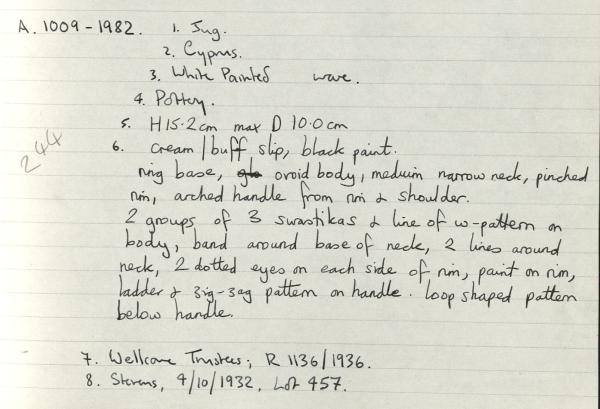 A. 1009-1982. 1. Jug.
2. Cyprus.
3. White Painted ware.
4. Pottery.
5. H 15.2cm max D 10.0cm
244
6. cream/buff slip, black paint.
ring base, ovoid body, medium narrow neck, pinched
rim, arched handle from rim & shoulder.
2 groups of 3 swastikas & line of w-pattern on
body, band around base of neck, 2 lines around
neck, 2 dotted eyes on each side of rim, paint on rim,
ladder & zig-zag pattern on handle. Loop shaped pattern
below handle.
7. Wellcome Trustees; R 1136/1936.
8. Stevens, 4/10/1932, Lot 457.